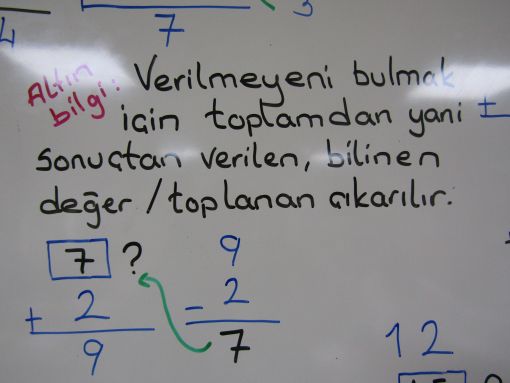 4
7
3
Altın bilgi: Verilmeyeni bulmak
için toplamdan yani
sonuçtan verilen, bilinen
değer / toplanan çıkarılır.
±
7 ?
+ 2
9
9
- 2
7
12